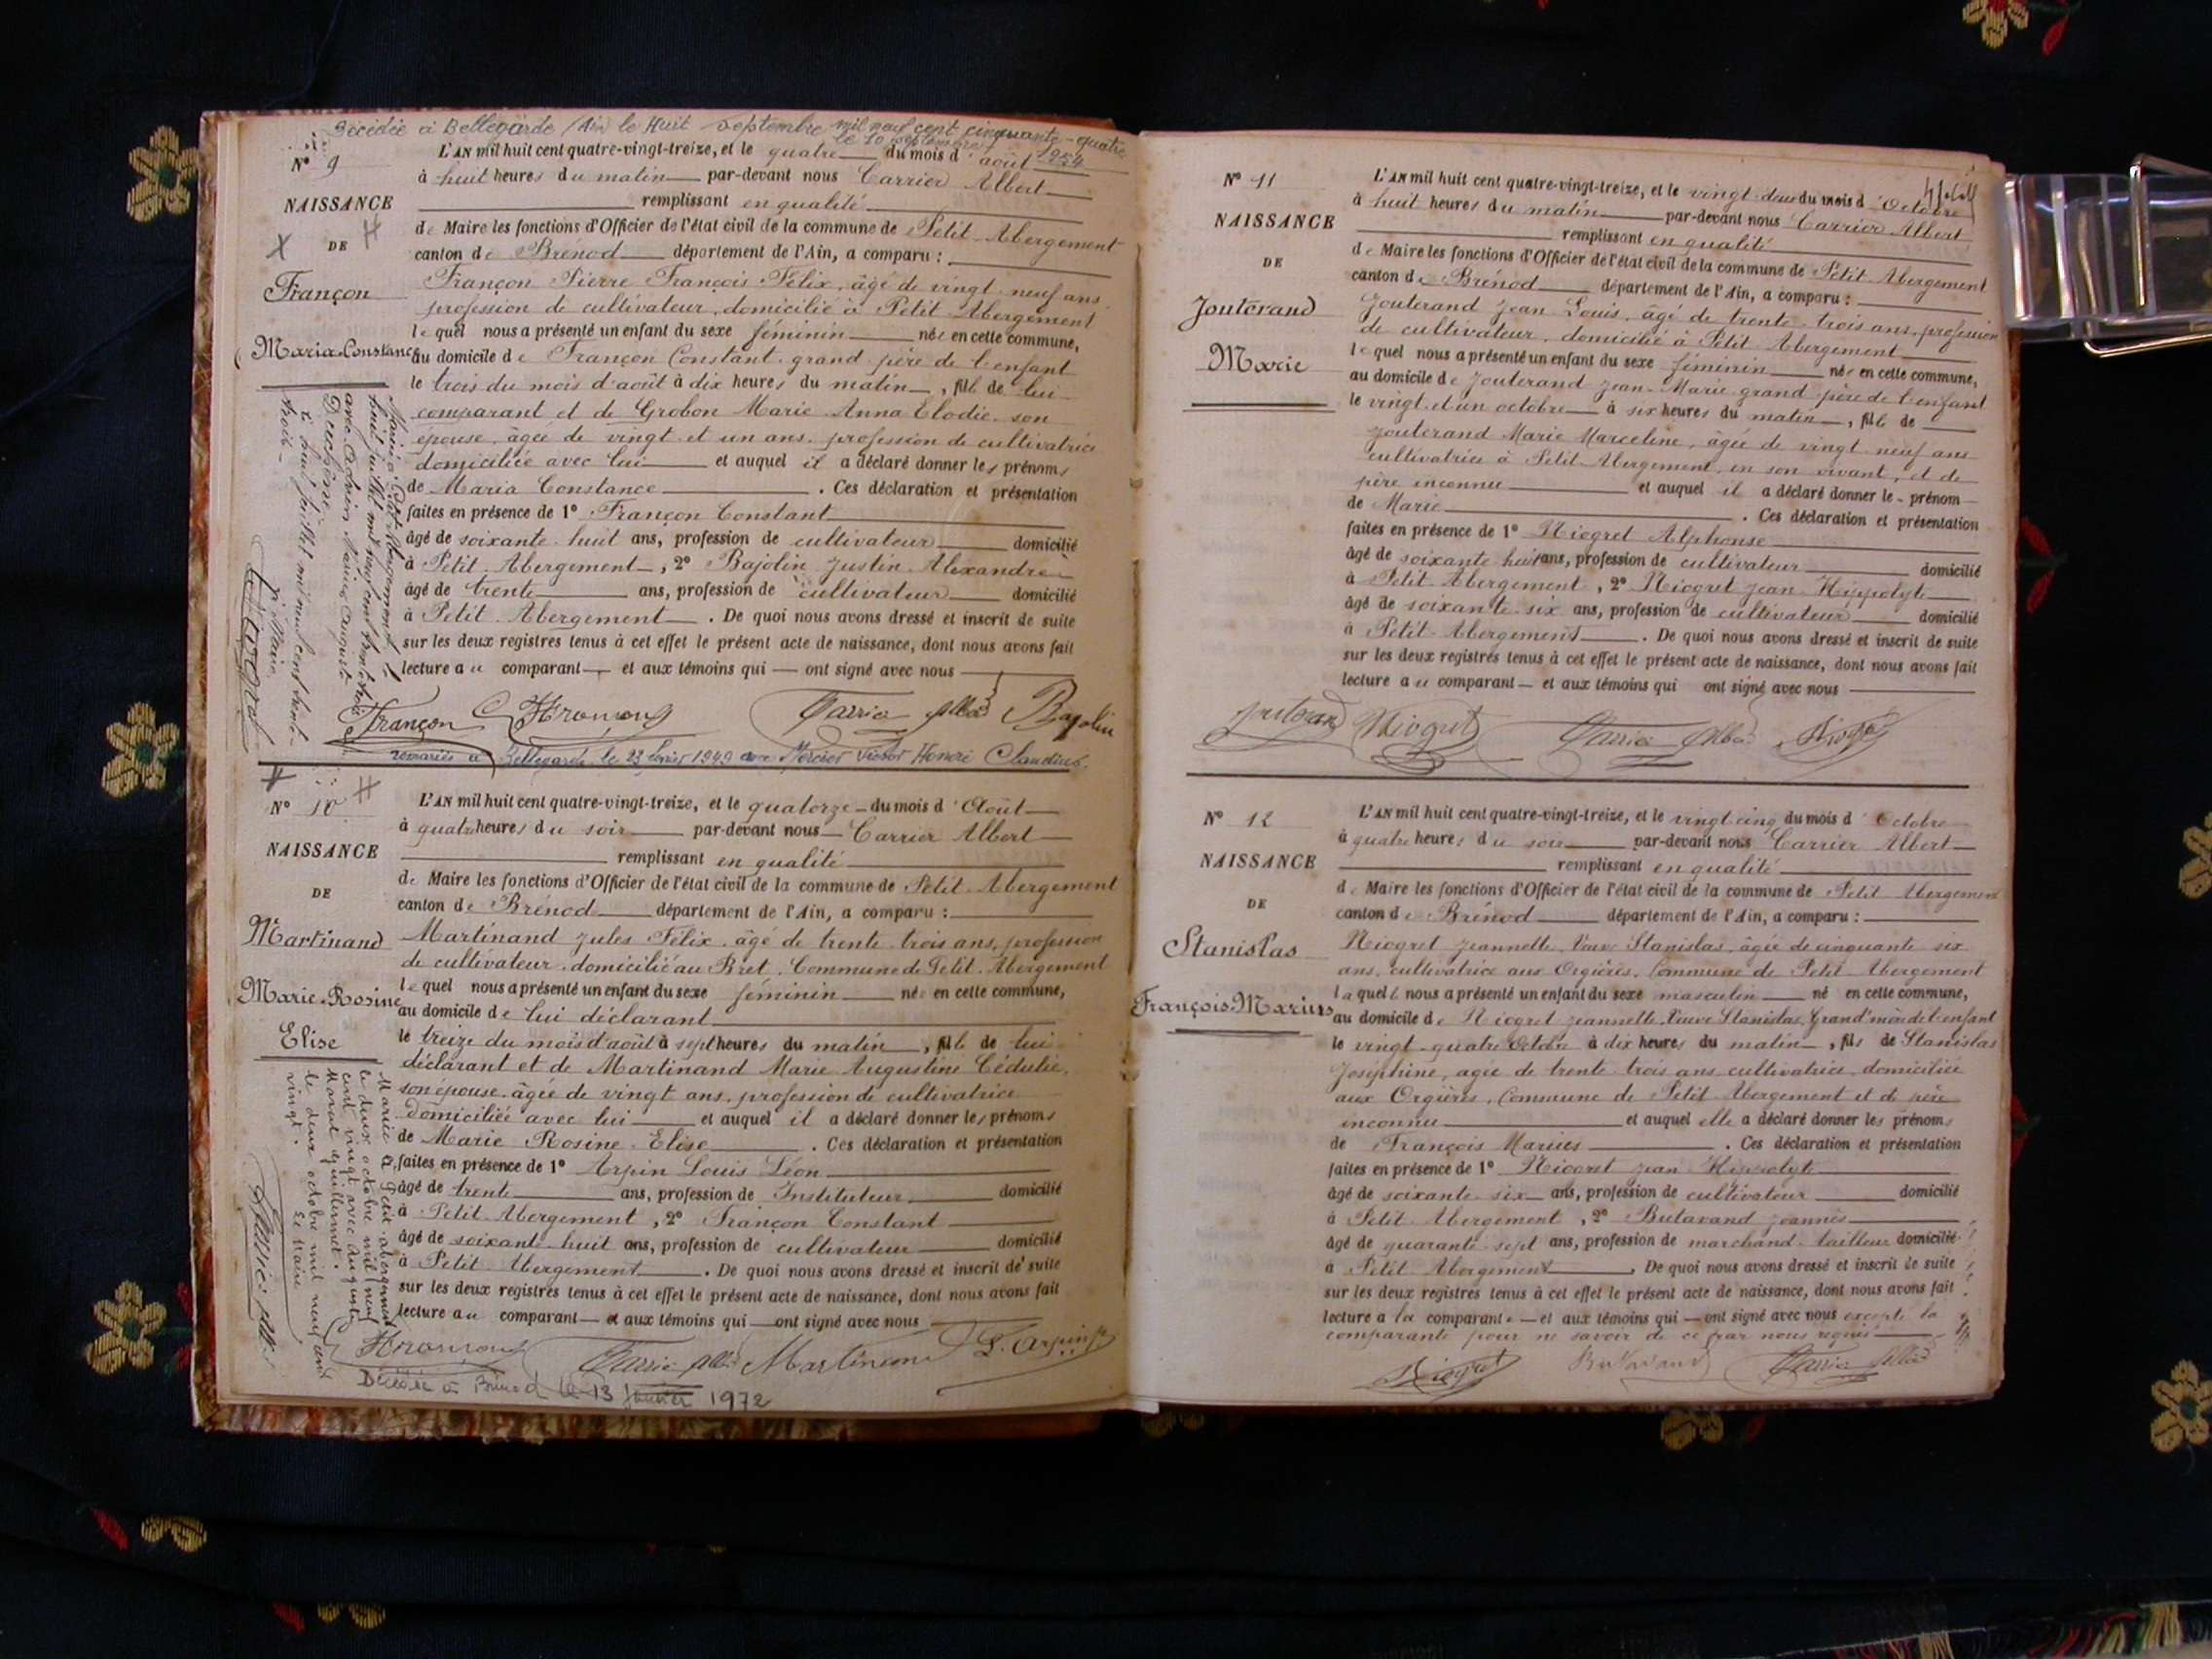 Décédée à Bellegarde (Ain) le Huit septembre mil neuf cent cinquante-quatre
le 10 septembre 1954
N° 9
NAISSANCE
DE
Françon
Maria Constance
L'AN mil huit cent quatre-vingt-treize, et le quatre du mois d'août
à huit heures du matin par-devant nous Carrier Albert
remplissant en qualité
de Maire les fonctions d'Officier de l'état civil de la commune de Petit-Abergement
canton de Brénod département de l'Ain, a comparu :
Françon Pierre François Félix, âgé de vingt-neuf ans
profession de cultivateur, domicilié à Petit-Abergement
lequel nous a présenté un enfant du sexe féminin née en cette commune,
au domicile de Françon Constant grand-père de l'enfant
le trois du mois d'août à dix heures du matin, fille de lui
comparant et de Grobon Marie Anna Elodie son
épouse, âgée de vingt et un ans, profession de cultivatrice
domiciliée avec lui et auquel il a déclaré donner les prénoms
de Maria Constance. Ces déclaration et présentation
faites en présence de 1° Françon Constant
âgé de soixante-huit ans, profession de cultivateur domicilié
à Petit-Abergement, 2° Bajolin Justin Alexandre
âgé de trente ans, profession de cultivateur domicilié
à Petit-Abergement. De quoi nous avons dressé et inscrit de suite
sur les deux registres tenus à cet effet le présent acte de naissance, dont nous avons fait
lecture au comparant et aux témoins qui ont signé avec nous
Françon Carrier Albert Bajolin
Mariée à Petit Abergement le
huit juillet mil neuf cent trente trois
avec
Dont
Le huit juillet mil neuf cent trente-
trois
Le Maire
remariée à Bellegarde le 23 1949 avec Mercier Victor Honoré Claudius.
N° 10
NAISSANCE
DE
Martinand
Marie-Rosine
Elise
L'AN mil huit cent quatre-vingt-treize, et le quatorze du mois d'Août
à quatre heures du soir par-devant nous Carrier Albert
remplissant en qualité
de Maire les fonctions d'Officier de l'état civil de la commune de Petit-Abergement
canton de Brénod département de l'Ain, a comparu :
Martinand Jules Félix, âgé de trente-trois ans, profession
de cultivateur, domicilié au Bret, Commune de Petit-Abergement
lequel nous a présenté un enfant du sexe féminin née en cette commune,
au domicile de lui déclarant
le treize du mois d'août à sept heures du matin, fille de lui
déclarant et de Martinand Marie Augustine Cédulie,
son épouse, âgée de vingt ans, profession de cultivatrice
domiciliée avec lui et auquel il a déclaré donner les prénoms
de Marie Rosine Elise. Ces déclaration et présentation
faites en présence de 1° Arpin Louis Léon
âgé de trente ans, profession de Instituteur domicilié
à Petit-Abergement, 2° Françon Constant
âgé de soixante-huit ans, profession de cultivateur domicilié
à Petit-Abergement. De quoi nous avons dressé et inscrit de suite
sur les deux registres tenus à cet effet le présent acte de naissance, dont nous avons fait
lecture au comparant et aux témoins qui ont signé avec nous
Carrier Albert Martinand L. Arpin
Mariée à Petit-Abergement
le deux octobre mil neuf
cent vingt avec Auguste
Marcel Guillermet.
le deux octobre mil neuf cent
vingt. Le Maire
Décédée à Brénod le 13 janvier 1972
N° 11
NAISSANCE
DE
Jouterand
Marie
L'AN mil huit cent quatre-vingt-treize, et le vingt-deux du mois d'Octobre
à huit heures du matin par-devant nous Carrier Albert
remplissant en qualité
de Maire les fonctions d'Officier de l'état civil de la commune de Petit-Abergement
canton de Brénod département de l'Ain, a comparu :
Jouterand Jean Louis, âgé de trente-trois ans, profession
de cultivateur, domicilié à Petit-Abergement
lequel nous a présenté un enfant du sexe féminin née en cette commune,
au domicile de Jouterand Jean-Marie grand-père de l'enfant
le vingt et un octobre à six heures du matin, fille de
Jouterand Marie Marceline, âgée de vingt-neuf ans
cultivatrice à Petit-Abergement, en son vivant, et de
père inconnu et auquel il a déclaré donner le prénom
de Marie. Ces déclaration et présentation
faites en présence de 1° Niogret Alphonse
âgé de soixante-huit ans, profession de cultivateur domicilié
à Petit-Abergement, 2° Niogret Jean Hippolyte
âgé de soixante-six ans, profession de cultivateur domicilié
à Petit-Abergement. De quoi nous avons dressé et inscrit de suite
sur les deux registres tenus à cet effet le présent acte de naissance, dont nous avons fait
lecture au comparant et aux témoins qui ont signé avec nous
Jouterand Niogret Carrier Albert Niogret
N° 12
NAISSANCE
DE
Stanislas
François-Marius
L'AN mil huit cent quatre-vingt-treize, et le vingt-cinq du mois d'Octobre
à quatre heures du soir par-devant nous Carrier Albert
remplissant en qualité
de Maire les fonctions d'Officier de l'état civil de la commune de Petit-Abergement
canton de Brénod département de l'Ain, a comparu :
Niogret Jeannette, Veuve Stanislas, âgée de cinquante-six
ans, cultivatrice aux Orgières, Commune de Petit-Abergement
laquelle nous a présenté un enfant du sexe masculin né en cette commune,
au domicile de Niogret Jeannette, Veuve Stanislas, Grand'mère de l'enfant
le vingt-quatre Octobre à dix heures du matin, fils de Stanislas
Joséphine, agée de trente-trois ans, cultivatrice, domiciliée
aux Orgières, Commune de Petit-Abergement et de père
inconnu et auquel elle a déclaré donner les prénoms
de François Marius. Ces déclaration et présentation
faites en présence de 1° Niogret Jean Hippolyte
âgé de soixante-six ans, profession de cultivateur domicilié
à Petit-Abergement, 2° Butavand Joannès
âgé de quarante-sept ans, profession de marchand-tailleur domicilié
à Petit-Abergement. De quoi nous avons dressé et inscrit de suite
sur les deux registres tenus à cet effet le présent acte de naissance, dont nous avons fait
lecture à la comparante et aux témoins qui ont signé avec nous excepté la
comparante pour ne savoir de ce par nous requis
Niogret Butavand Carrier Albert